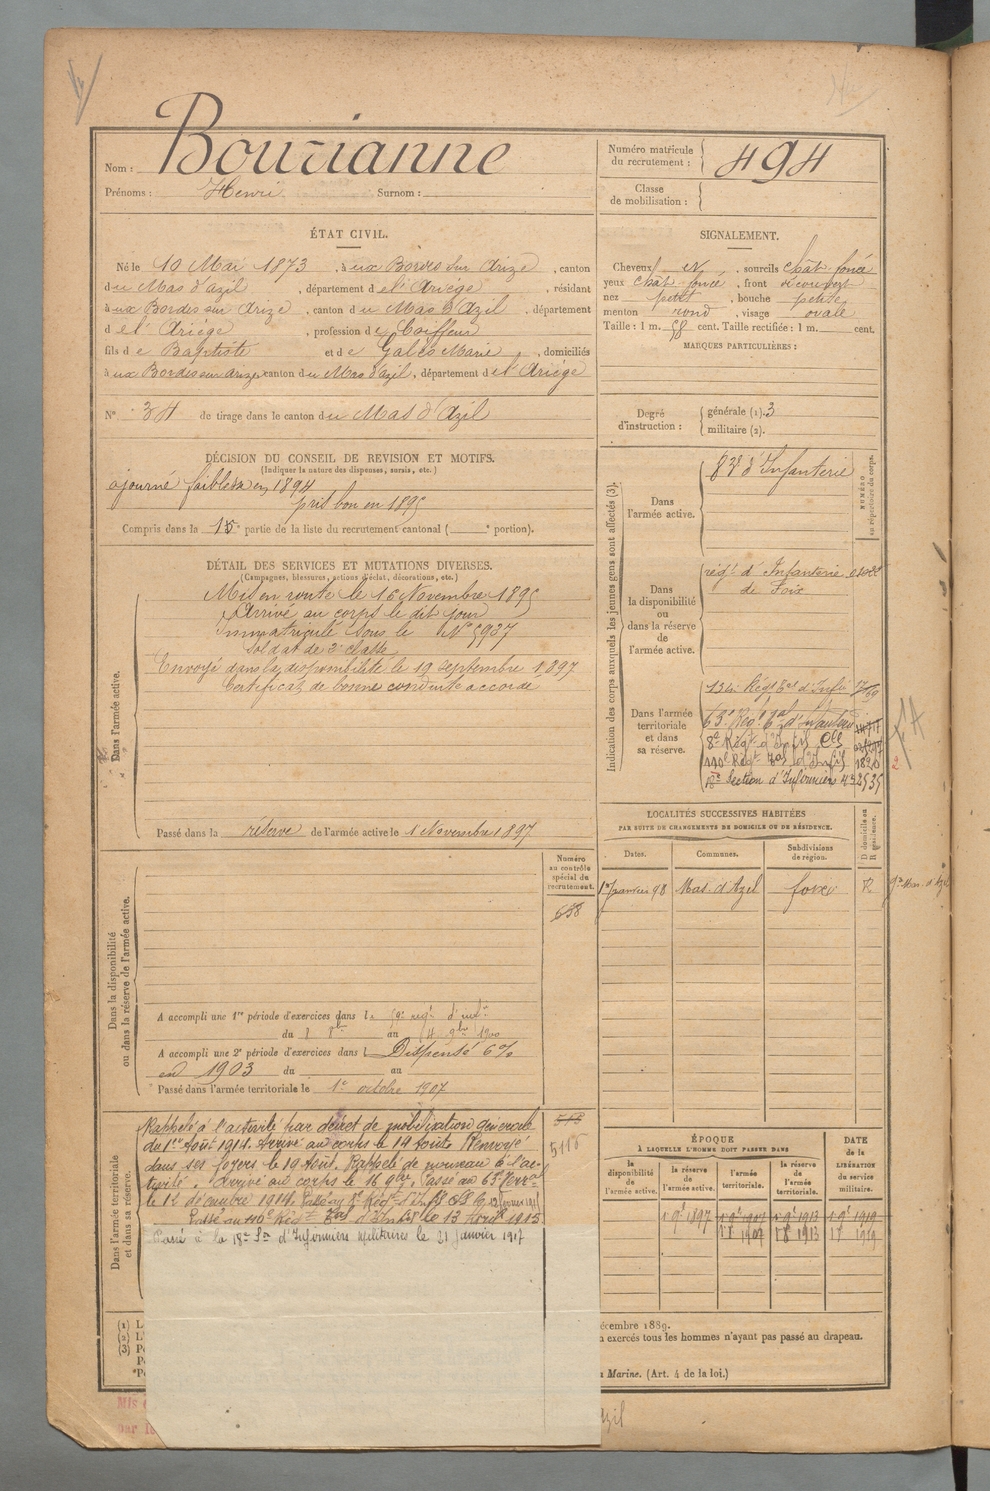 Nom : Bourianne
Prénoms : Henri Surnom :
Numéro matricule du recrutement : 494
Classe de mobilisation :
ÉTAT CIVIL.
Né le 10 Mai 1873, à ux Bordes sur Arize, canton
du Mas d'azil, département de l'Ariège, résidant
à ux Bordes sur Arize, canton du Mas d'Azil, département
d e l'Ariège, profession de Coiffeur
fils de Baptiste et de Galès Marie, domiciliés
à ux Bordes sur Arize, canton du Mas d'azil, département de l'Ariège
N° 34 de tirage dans le canton du Mas d'Azil
SIGNALEMENT.
Cheveux et, sourcils chât foncé
yeux chât foncé, front découvert
nez petit, bouche petite
menton rond, visage ovale
Taille : 1 m. 58 cent. Taille rectifiée : 1 m. cent.
MARQUES PARTICULIÈRES :
Degré d'instruction : générale (1). 3
militaire (2).
DÉCISION DU CONSEIL DE REVISION ET MOTIFS.
(Indiquer la nature des dispenses, sursis, etc.)
ajourné faiblesse en 1894
pris bon en 1895
Compris dans la 1e partie de la liste du recrutement cantonal ( e portion).
DÉTAIL DES SERVICES ET MUTATIONS DIVERSES.
(Campagnes, blessures, actions d'éclat, décorations, etc.)
Dans l'armée active.
Mis en route le 16 Novembre 1895
Arrivé au corps le dit jour
Immatriculé sous le N° 5937
Soldat de 2e classe
Envoyé dans la disponibilité le 19 septembre 1897
Certificat de bonne conduite accordé
Passé dans la réserve de l'armée active le 1 Novembre 1897
Indication des corps auxquels les jeunes gens sont affectés (3).
NUMÉRO au répertoire du corps.
Dans l'armée active.
83e d'Infanterie
Dans la disponibilité ou dans la réserve de l'armée active.
régt d'Infanterie
de Foix
Dans l'armée territoriale et dans sa réserve.
134e Régt Tal d'Infie
63e Régt Tal d'Infanterie
8e Régt d'Infie Clle
110e Régt Tal d'Infie 1820
18e Section d'Infirmiers 2535
LOCALITÉS SUCCESSIVES HABITÉES
PAR SUITE DE CHANGEMENTS DE DOMICILE OU DE RÉSIDENCE.
D domicile ou R résidence.
Dates. Communes. Subdivisions de région.
1er janvier 98 Mas-d'Azil foix R
Dans la disponibilité ou dans la réserve de l'armée active.
Numéro au contrôle spécial du recrutement.
658
A accompli une 1re période d'exercices dans le 59e régt d'infie
du 8 8bre au 4 9bre 1900
A accompli une 2e période d'exercices dans l Dispensé 6%
en 1903 du au
Passé dans l'armée territoriale le 1er octobre 1907
Dans l'armée territoriale et dans sa réserve.
Rappelé à l'activité par décret de mobilisation générale
du 1er Août 1914. Arrivé au corps le 14 Août. Renvoyé
dans ses foyers le 19 Août. Rappelé de nouveau à l'ac-
tivité. Arrivé au corps le 16 9bre. Passé au 63e Terral
le 12 décembre 1914. Passé au 8e Régt d'Inf
Passé au 110e Régt Tal d'Infie le 13 Avril 1915
Passé à la 18e Son d'Infirmiers militaires le 21 janvier 1917
5115
ÉPOQUE
À LAQUELLE L'HOMME DOIT PASSER DANS
DATE de la LIBÉRATION du service militaire.
la disponibilité de l'armée active. la réserve de l'armée active. l'armée territoriale. la réserve de l'armée territoriale.
1 9e 1897 1 9e 1907 1 9e 1913 1 9e 1919
1907 1913 1919
(1)
(2)
(3)
écembre 1889.
exercés tous les hommes n'ayant pas passé au drapeau.
Marine. (Art. 4 de la loi.)
Mis
par